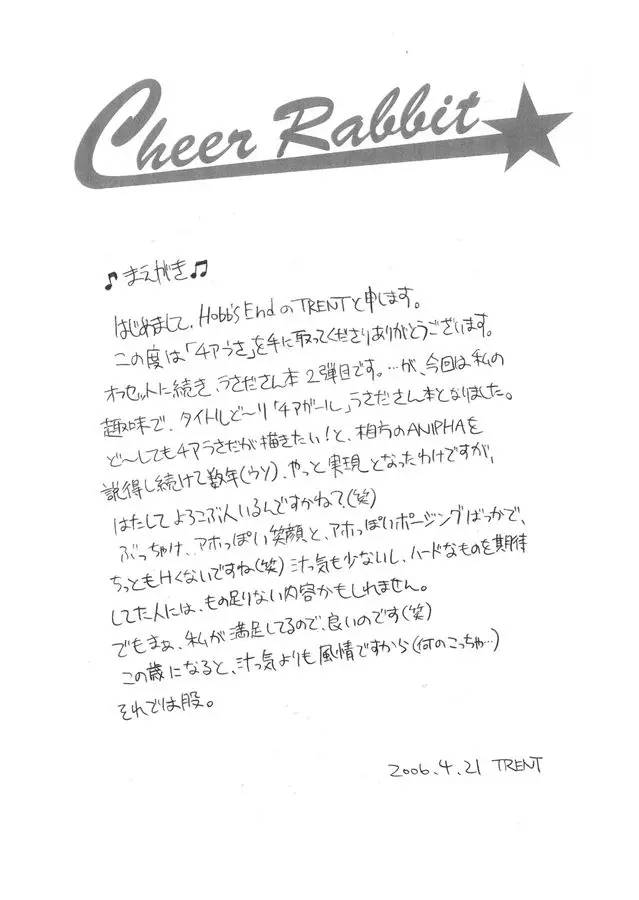 Cheer Rabbit
♪まえがき♫
はじめまして、Hobb's EndのTRENTと申します。
この度は「チアうさ」を手に取ってくださりありがとうございます。
オフセットに続き、うさださん本2弾目です。…が、今回は私の
趣味で、タイトルど〜り「チアガール」うさださん本となりました。
ど〜してもチアうさだが描きたい!と、相方のANIPHAを
説得し続けて数年(ウソ)、やっと実現となったわけですが、
はたしてよろこぶ人いるんですかねぇ?(笑)
ぶっちゃけ、アホっぽい笑顔と、アホっぽいポージングばっかで、
ちっともHくないですね(笑)汁っ気も少ないし、ハードなものを期待
してた人には、もの足りない内容かもしれません。
でもまぁ、私が満足してるので、良いのです(笑)
この歳になると、汁っ気よりも風情ですから(何のこっちゃ…)
それでは股。
2006.4.21 TRENT